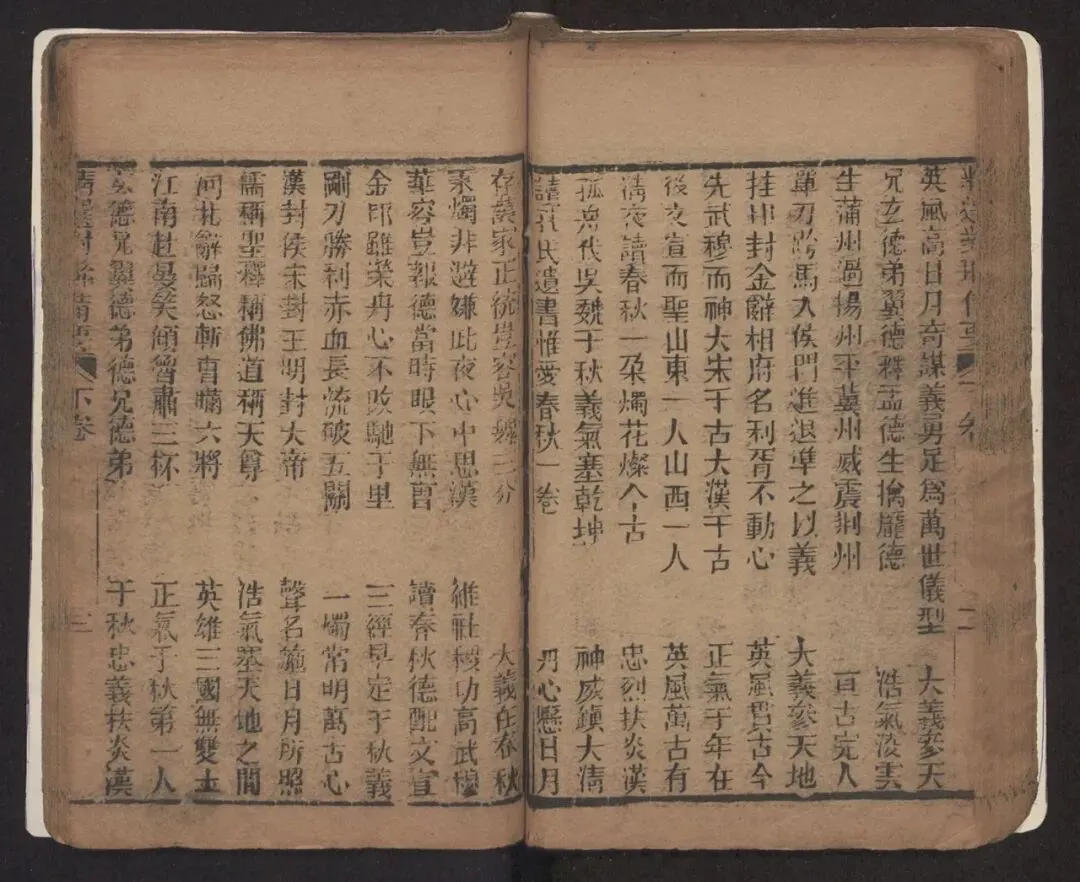 二
英風高日月奇謀義勇足爲萬世儀型　大義參天
兄玄德弟翼德釋孟德生擒龐德　浩氣凌雲
生蒲州過揚州平冀州威震荆州　亘古完人
單刀跨馬入侯門進退準之以義　大義參天地
挂印封金辭相府名利胥不動心　英風貫古今
先武穆而神大宋千古大漢千古　正氣千年在
後文宣而聖山東一人山西一人　英風萬古有
清夜讀春秋一朶燭花燦今古　忠烈扶炎漢
孤舟伐吳魏千秋義氣塞乾坤　神威鎭大清
讀孔氏遺書惟愛春秋一卷　丹心懸日月
存漢家正統豈容吳魏三分　大義在春秋
秉燭非避嫌此夜心中思漢　維社稷功高武穆
華容豈報德當時眼下無曹　讀春秋德配文宣
金印雖榮丹心不改馳千里　三經早定千秋義
剛刀勝利赤血長流破五關　一燭常明萬古心
漢封侯宋封王明封大帝　聲名籠日月所照
儒稱聖釋稱佛道稱天尊　浩氣塞天地之間
河北辭歸怒斬曹瞞六將　英雄三國無雙士
江南赴宴笑傾魯肅三杯　正氣千秋第一人
玄德兄翼德弟德兄德弟　千秋忠義扶炎漢
下卷　三